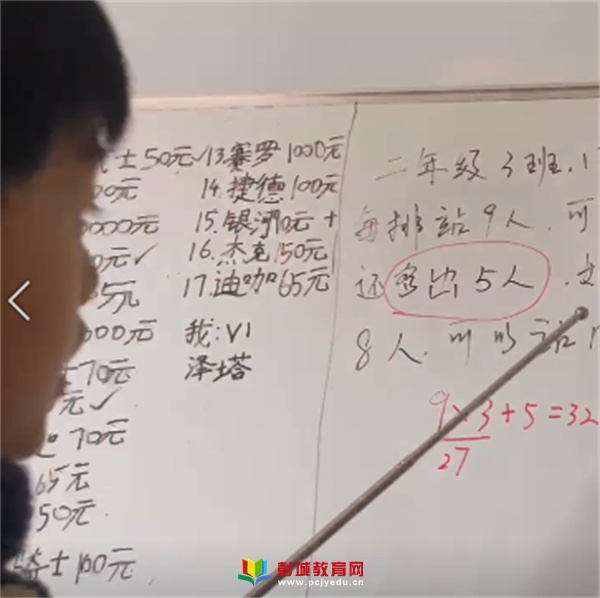 士50元✓
元
000元
元✓
5元
000元
70元
元✓
70元
65元
50元
士100元
13.赛罗1000元
14.捷德100元
15.银河0元+
16.杰克150元
17.迪咖65元
我:V1
泽塔
二年级3班.
每排站9人.可
还多出5人.
8人.可以站
9×3+5=32
27
彭城教育网
www.pcjyedu.cn